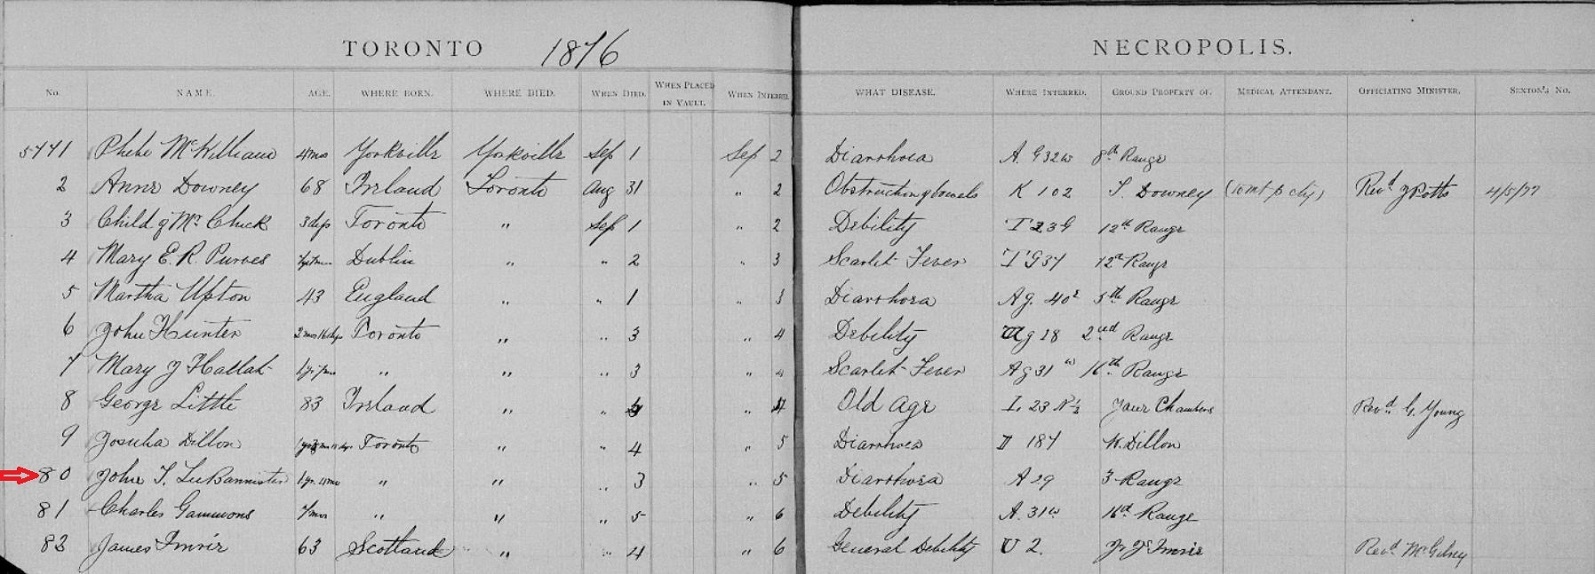 TORONTO 1876 NECROPOLIS.
No. NAME. AGE. WHERE BORN. WHERE DIED. WHEN DIED. WHEN PLACED IN VAULT. WHEN INTERRED. WHAT DISEASE. WHERE INTERRED. GROUND PROPERTY OF. MEDICAL ATTENDANT. OFFICIATING MINISTER. SEXTON'S NO.
5771 Phebe McWilliams 4mos Yorkville Yorkville Sep 1 Sep 2 Diarrhoea A. G 32w 8th Range
2 Anne Downey 68 Ireland Toronto Aug 31 " 2 Obstruction of bowels K 102 S. Downey Revd J Potts 4/5/77
3 Child of Mr Chuck 3dys Toronto " Sep 1 " 2 Debility I 23G 12th Range
4 Mary E. R. Purves Dublin " " 2 " 3 Scarlet Fever I G37 12th Range
5 Martha Upton 43 England " " 1 " 3 Diarrhoea Ag. 40 5th Range
6 John Hunter 2mos 16dys Toronto " " 3 " 4 Debility g 18 2nd Range
7 Mary J Hallat " " " 3 " 4 Scarlet Fever Ag 31 w 16th Range
8 George Little 83 Ireland " " 4 " 4 Old Age L. 23 N½ Chambers Revd. G. Young
9 Josuha Dillon Toronto " " 4 " 5 Diarrhoea D 187 W. Dillon
80 John T. LeeBannister 1yr " " " 3 " 5 Diarrhoea A 29 3 Range
81 Charles Gammons 7mos " " " 5 " 6 Debility A. 31w 16th Range
82 James Imrie 63 Scotland " " 4 " 6 General Debility U 2. Imrie Revd.